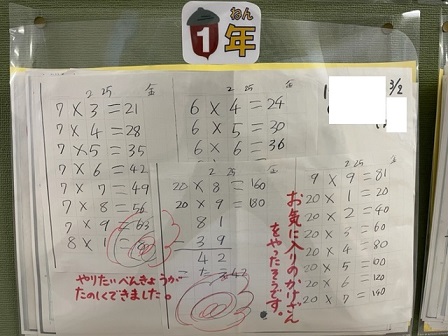 ねん
1年
2 25 金
7×3=21
7×4=28
7×5=35
7×6=42
7×7=49
7×8=56
7×9=63
8×1=
2 25 金
6×4=24
6×5=30
6×6=36
3/2
20×8=160
20×9=180
81
-39
42
2 25 金
9×9=81
20×1=20
20×2=40
20×3=60
20×4=80
20×5=100
20×6=120
20×7=140
お気に入りのかけざん
をやったそうです。
やりたいべんきょうが
たのしくできました。